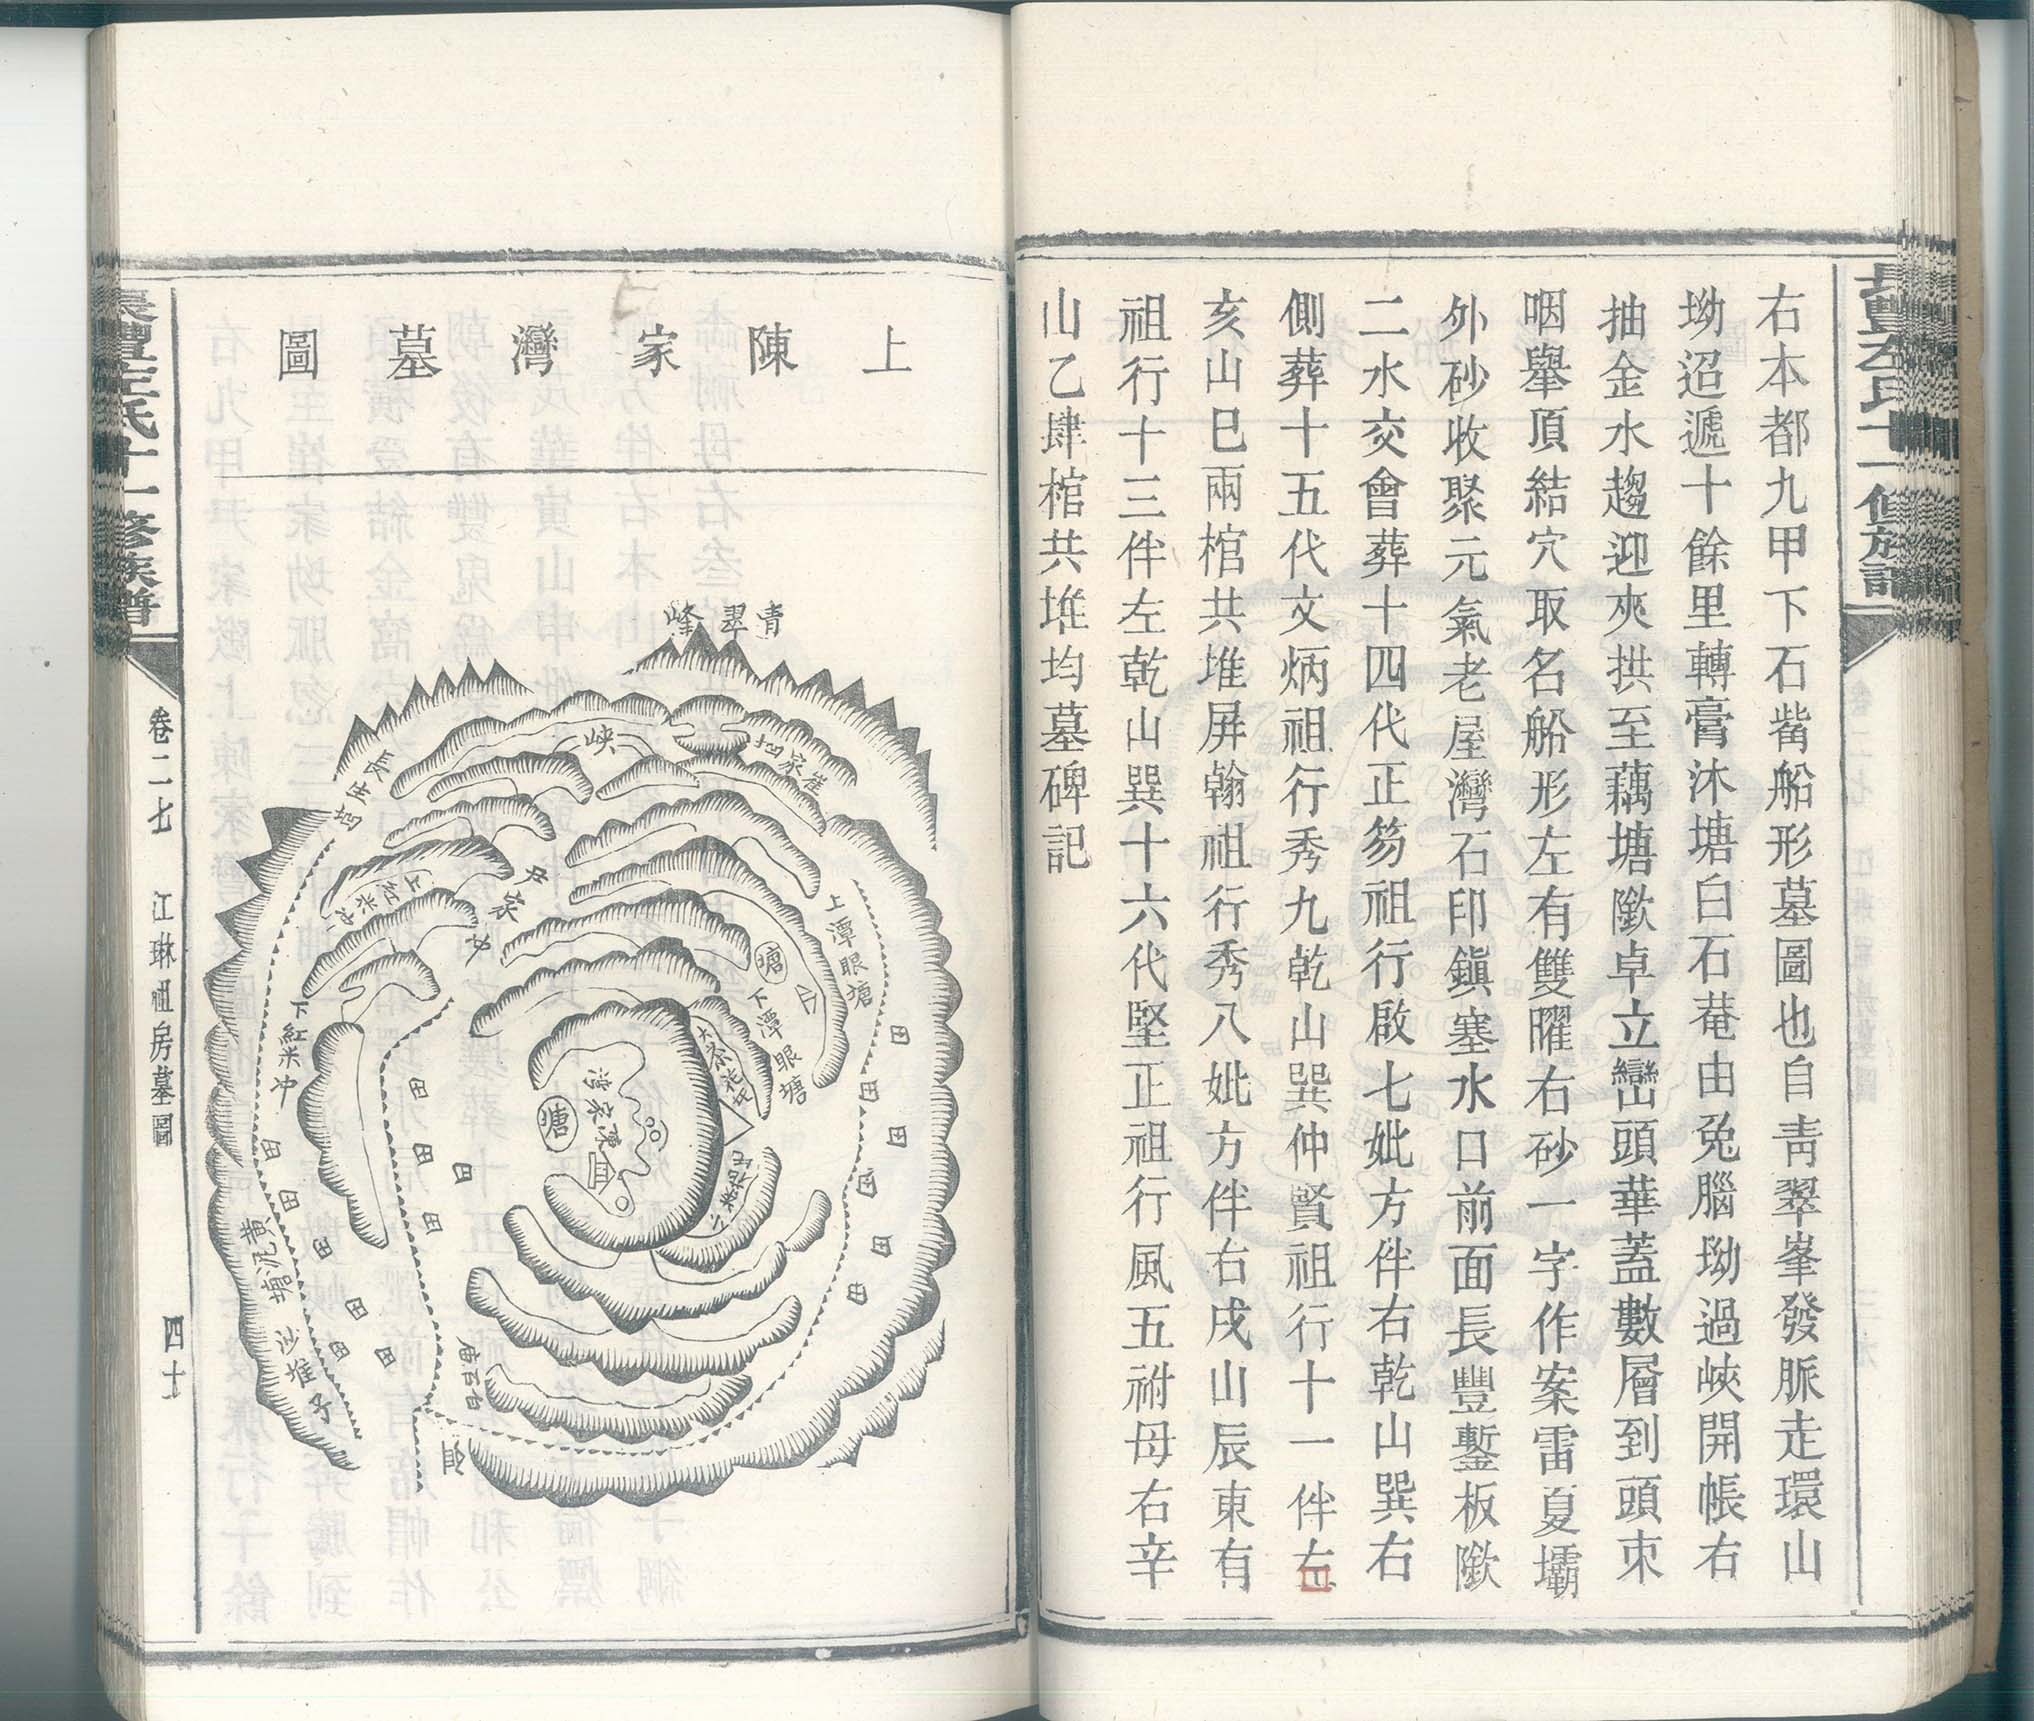 右本都九甲下石觜船形墓圖也自青翠峯發脈走環山
坳迢遞十餘里轉膏沐塘白石菴由兔腦坳過峽開帳右
抽金水趨迎夾拱至藕塘㘓卓立巒頭華蓋數層到頭束
咽舉頂結穴取名船形左有雙曜右砂一字作案雷夏壩
外砂收聚元氣老屋灣石印鎭塞水口前面長豐鏨板㘓
二水交會葬十四代正笏祖行啟七妣方伴右乾山巽右
側葬十五代文炳祖行秀九乾山巽仲賢祖行十一伴右
亥山巳兩棺共堆屏翰祖行秀八妣方伴右戌山辰東有
祖行十三伴左乾山巽十六代堅正祖行風五祔母右辛
山乙肆棺共堆均墓碑記
上陳家灣墓圖
青翠峰
峽
崔家坳
長生坳
上紅米冲
尹家冲
上潭眼塘
塘
下潭眼塘
下紅米冲
灣家陳
塘
田
黃泥塘
沙堆子
長豐左氏十一修族譜
卷二七
江琳祖房墓圖
四十